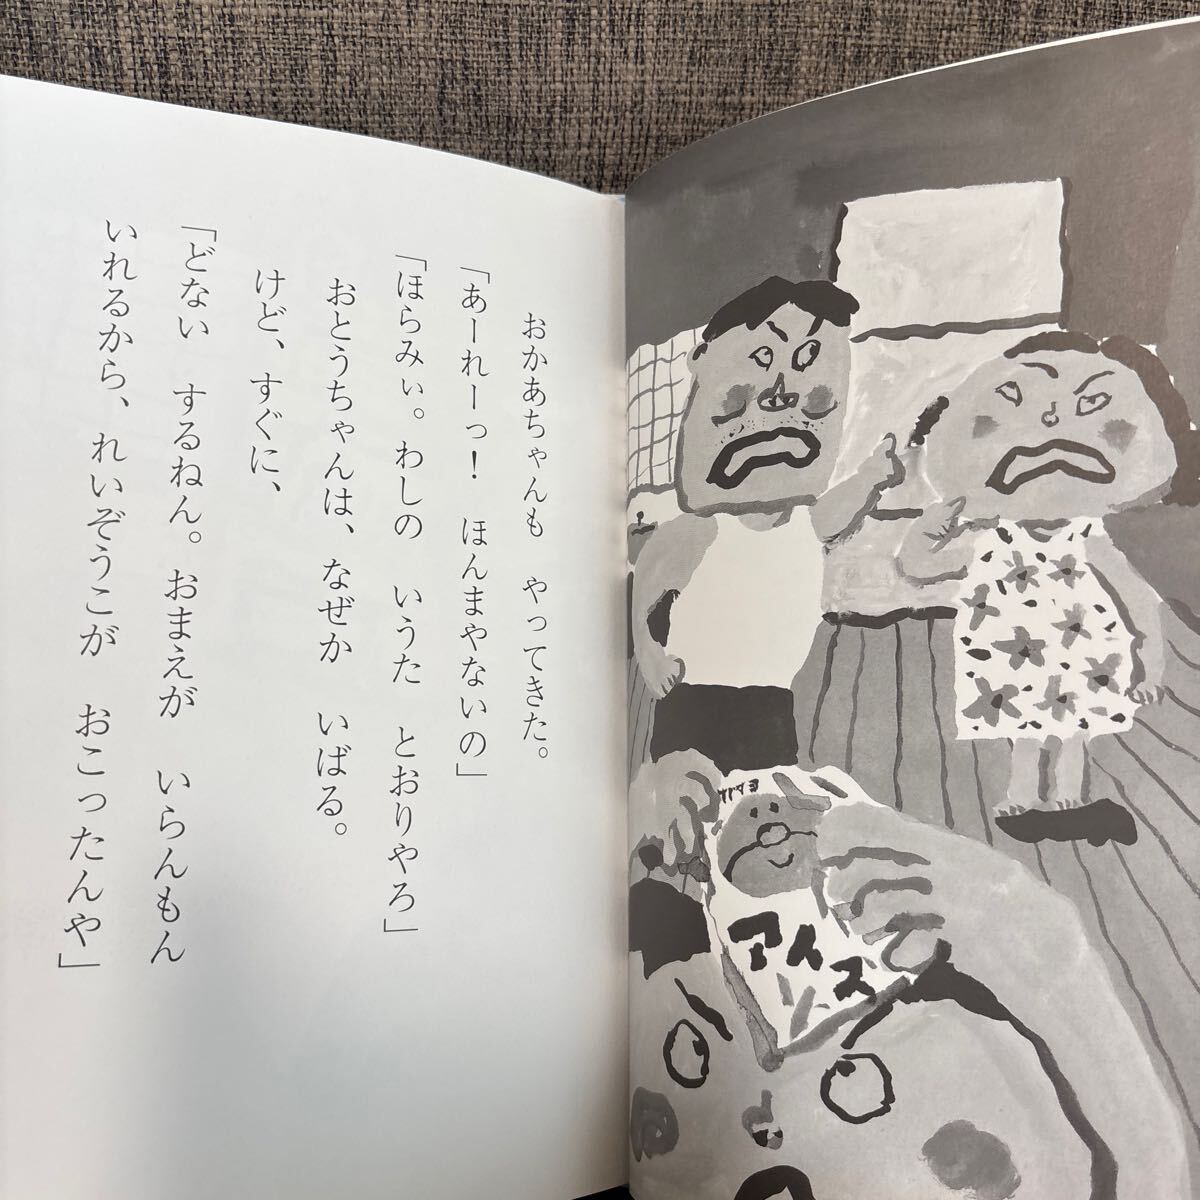 おかあちゃんも　やってきた。
「あーれーっ！　ほんまやないの」
「ほらみぃ。わしの　いうた　とおりやろ」
おとうちゃんは、なぜか　いばる。
けど、すぐに、
「どない　するねん。おまえが　いらんもん
いれるから、れいぞうこが　おこったんや」
アイス